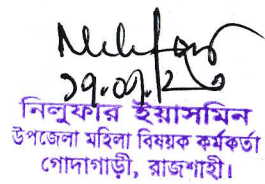 নিলুফার ইয়াসমিন
উপজেলা মহিলা বিষয়ক কর্মকর্তা
গোদাগাড়ী, রাজশাহী।